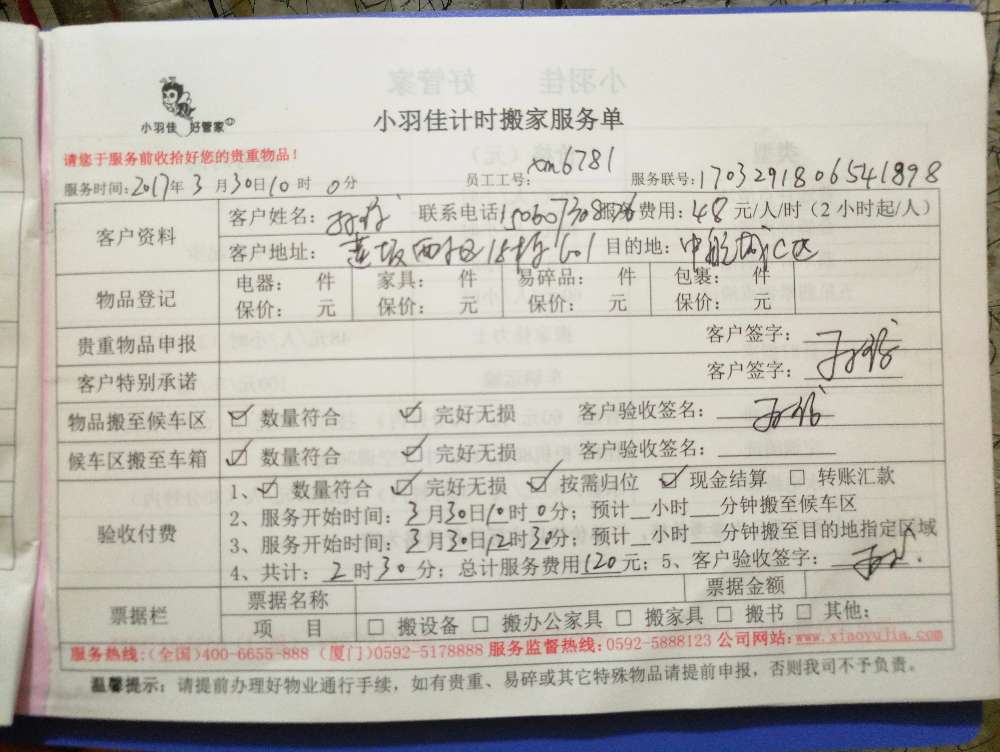 小羽佳 好管家
小羽佳计时搬家服务单
请您于服务前收拾好您的贵重物品！
服务时间：2017年3月30日10时0分 员工工号：xm6781 服务联号：1703291806541898
客户资料
客户姓名： 联系电话 服务费用：48元/人/时（2小时起/人）
客户地址：莲坂西村区18栋601 目的地：中航城C区
物品登记
电器： 件 家具： 件 易碎品： 件 包裹： 件
保价： 元 保价： 元 保价： 元 保价： 元
贵重物品申报 客户签字：
客户特别承诺 客户签字：
物品搬至候车区 ☑ 数量符合 ☑ 完好无损 客户验收签名：
候车区搬至车箱 ☑ 数量符合 ☑ 完好无损 客户验收签名：
验收付费
1、☑ 数量符合 ☑ 完好无损 ☑ 按需归位 ☑ 现金结算 □ 转账汇款
2、服务开始时间：3月30日10时0分；预计__小时___分钟搬至候车区
3、服务开始时间：3月30日12时30分；预计__小时___分钟搬至目的地指定区域
4、共计：2时30分；总计服务费用120元；5、客户验收签字：
票据栏
票据名称 票据金额
项 目 □ 搬设备 □ 搬办公家具 □ 搬家具 □ 搬书 □ 其他：
服务热线：(全国)400-6655-888 (厦门)0592-5178888 服务监督热线：0592-5888123 公司网站：www.xiaoyujia.com
温馨提示：请提前办理好物业通行手续，如有贵重、易碎或其它特殊物品请提前申报，否则我司不予负责。